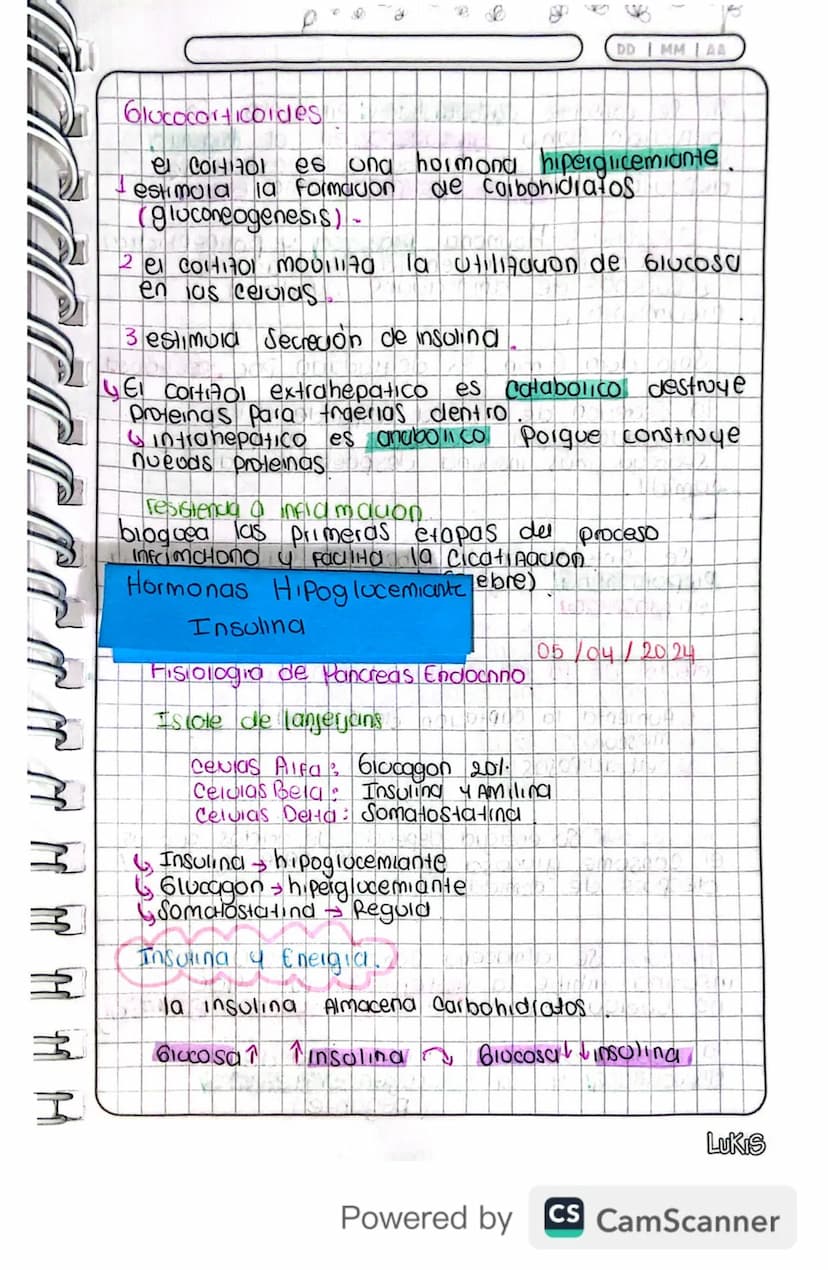 DD | MM | AA
Glucocorticoides
el cortizol es una hormona hiperglicemiante.
1 estimula la formacion de carbohidratos
(gluconeogenesis).
2 el cortizol moviliza la utilizacion de Glucosa
en las celulas.
3 estimula secreción de insulina.
El cortizol extrahepatico es catabolico destruye
proteinas para traerlas dentro.
intrahepatico es anabolico porque construye
nuevas proteinas
resistencia a inflamacion
bloquea las primeras etapas del proceso
y facilita la cicatrizacion
ebre)
Hormonas Hipoglucemiante
Insulina
05/04/2024
Fisiologia de Pancreas Endocrino
Islote de langerjans
Celulas Alfa: Glucagon 20%
Celulas Beta: Insulina y Amilina
Celulas Delta: Somatostatina
↳ Insulina → hipoglucemiante
↳ Glucagon → hiperglucemiante
↳ Somatostatina → Regula
Insulina y Energia.
la insulina Almacena Carbohidratos.
Glucosa↑ ↑Insulina Glucosa↓ ↓insulina
LUKIS
Powered by CS CamScanner